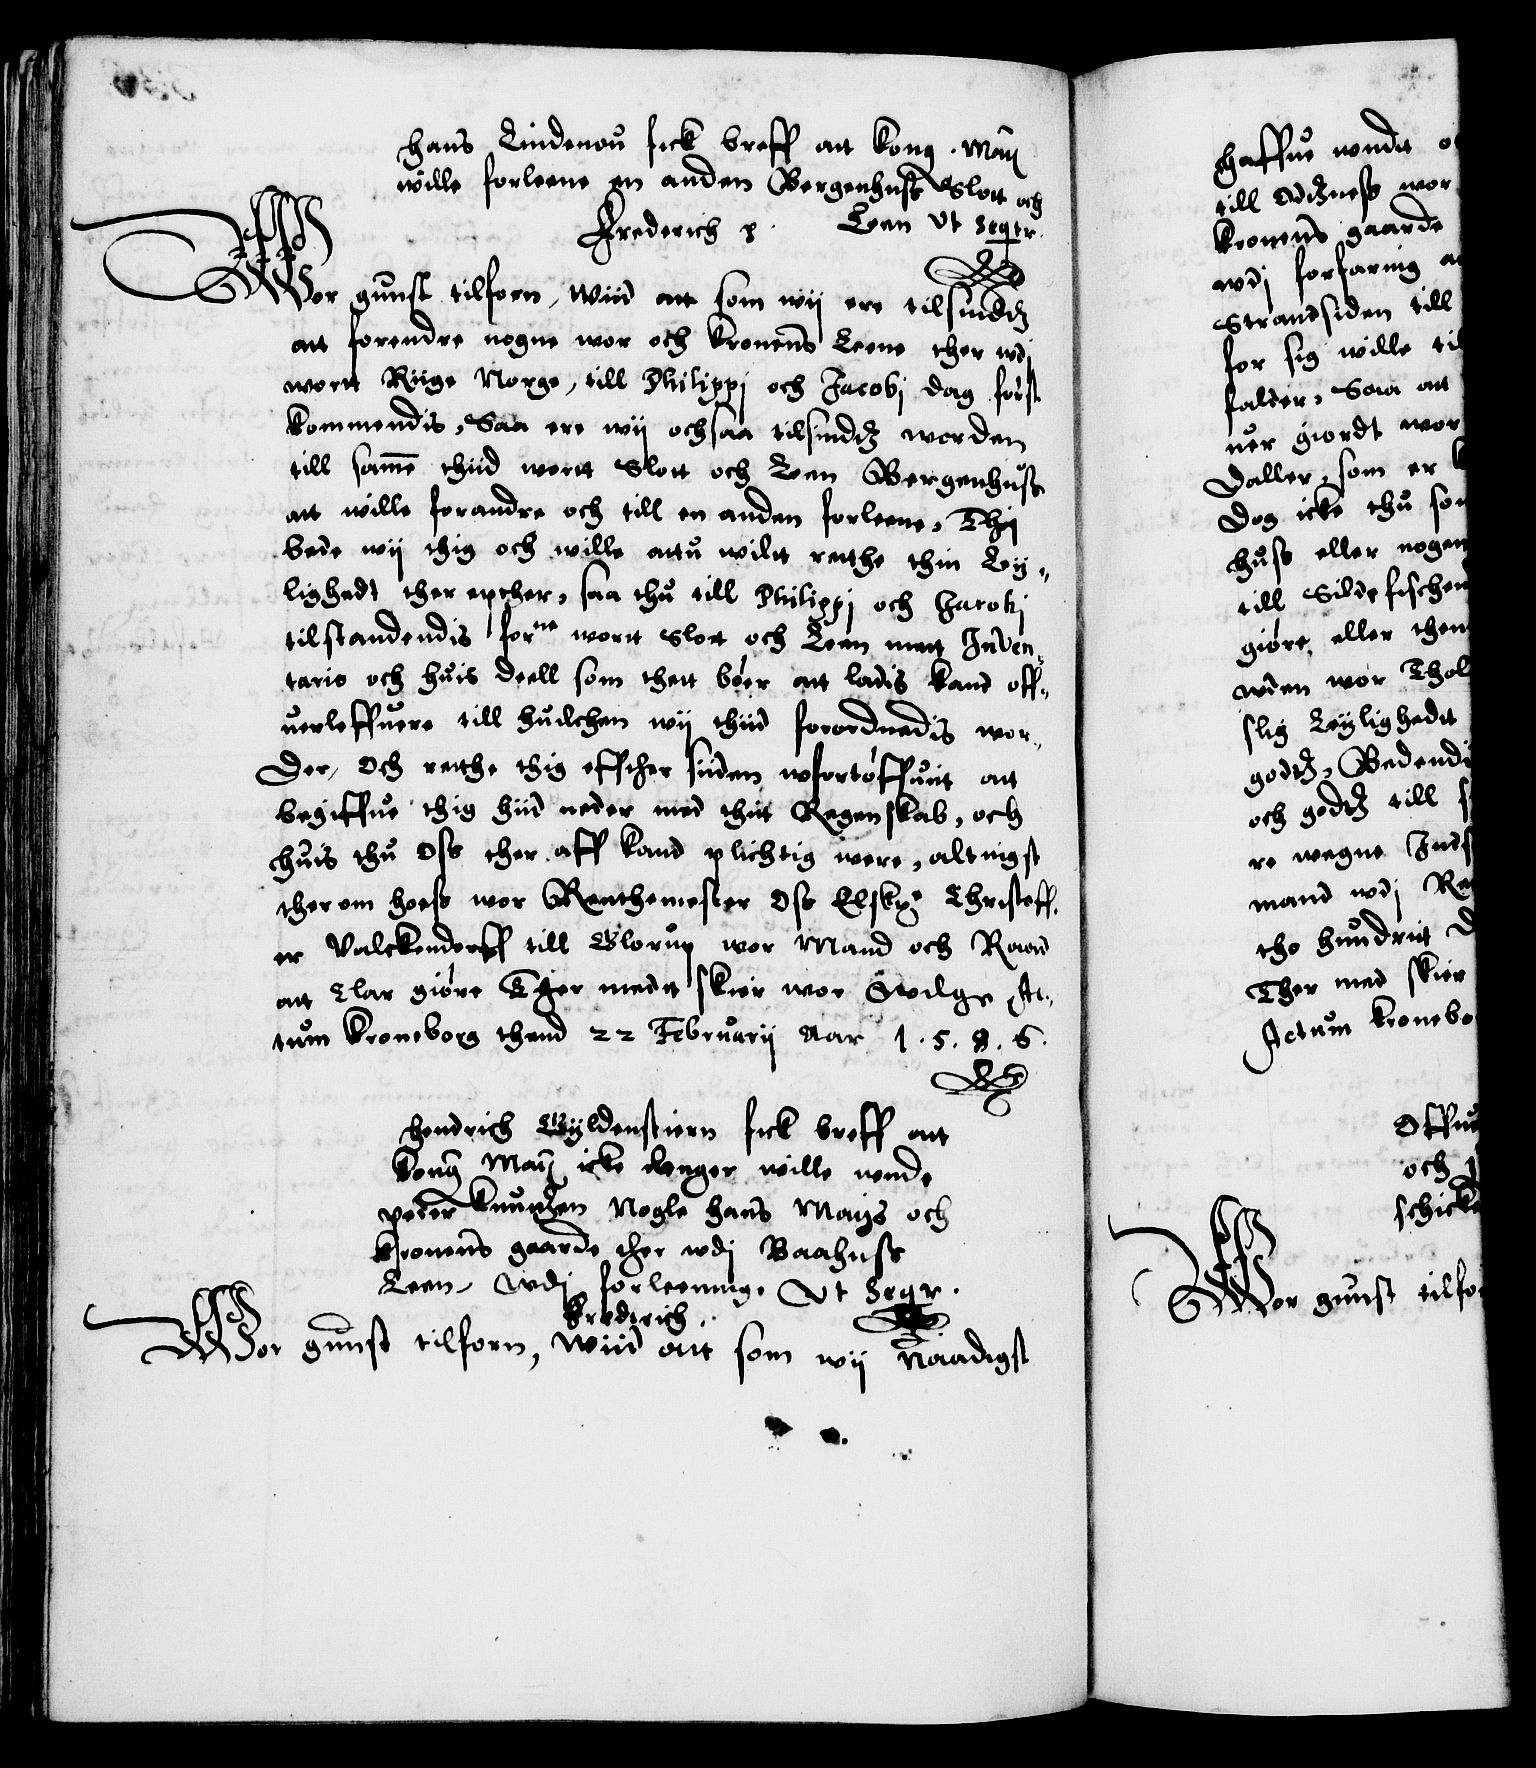 Hans Lindenou fick breff att kong. Maij
wille forleene en anden Bergenhuss Slott och
Frederich p. Leen Ut Seqtr.
Wor gunst tilforn, Wiid att som wij ere tilsindtz
att forendre nogne wor och Kronens Leene ther wdj
wortt Riige Norge, till Philippj och Jacobj dag først
kommendis, Saa ere wij ochsaa tilsindtz worden
till samme thiid wortt Slott och Leen Bergenhuss
att wille forandre och till en anden forleene, Thj
bede wij thig och wille attu wilt rætthe thin Ley-
lighedt ther epther, saa thu till Philippj och Jacobj
tilstandendis forne wortt Slott och Leen mett Inven-
tario och huis deell som thett bøer att ladis kand off-
uerleffuere till huilchen wij thiid forordnedis wor-
der, Och rætthe thig effther siiden wfortøffuitt att
begiffue thig hiid neder med thitt Regenskab, och
huis thu Oss ther aff kand plichtig were, altnigst
ther om hoess wor Renthemester Oss Elske Christoff-
er Valckendorff till Glorup wor Mand och Raad
att Clar giøre Ther medtt skier wor Willge Ac-
tum Kroneborg thend 22 Februarij Aar 1.5.8.6.
Hendrich Gyldenstiern fick breff att
kong Maij icke lenger wille unde
peder Knudtzen Nogle Hans Maijs och
Kronens gaarde ther wdj Baahuss
Leen, wdj forleening. Ut Seqr.
Frederich.
Wor gunst tilforn, Wiid att som wij Naadigst
haffue undt
till Oddness wor
Kronens gaarde
wdj forfaring
Strandsiden till
for sig wille
falder, Saa att
uer giordt wor
Daller, som er
Dog icke thu
huss eller nogen
till Silde fischen
giøre, eller then
wden wor
slig Leylighedt
godtz, Bedendis
och godtz till
re wegne
mand wdj
tho hundrit
Ther med skier
Actum Kronebo
Offue
och
schicke
Wor gunst tilfo